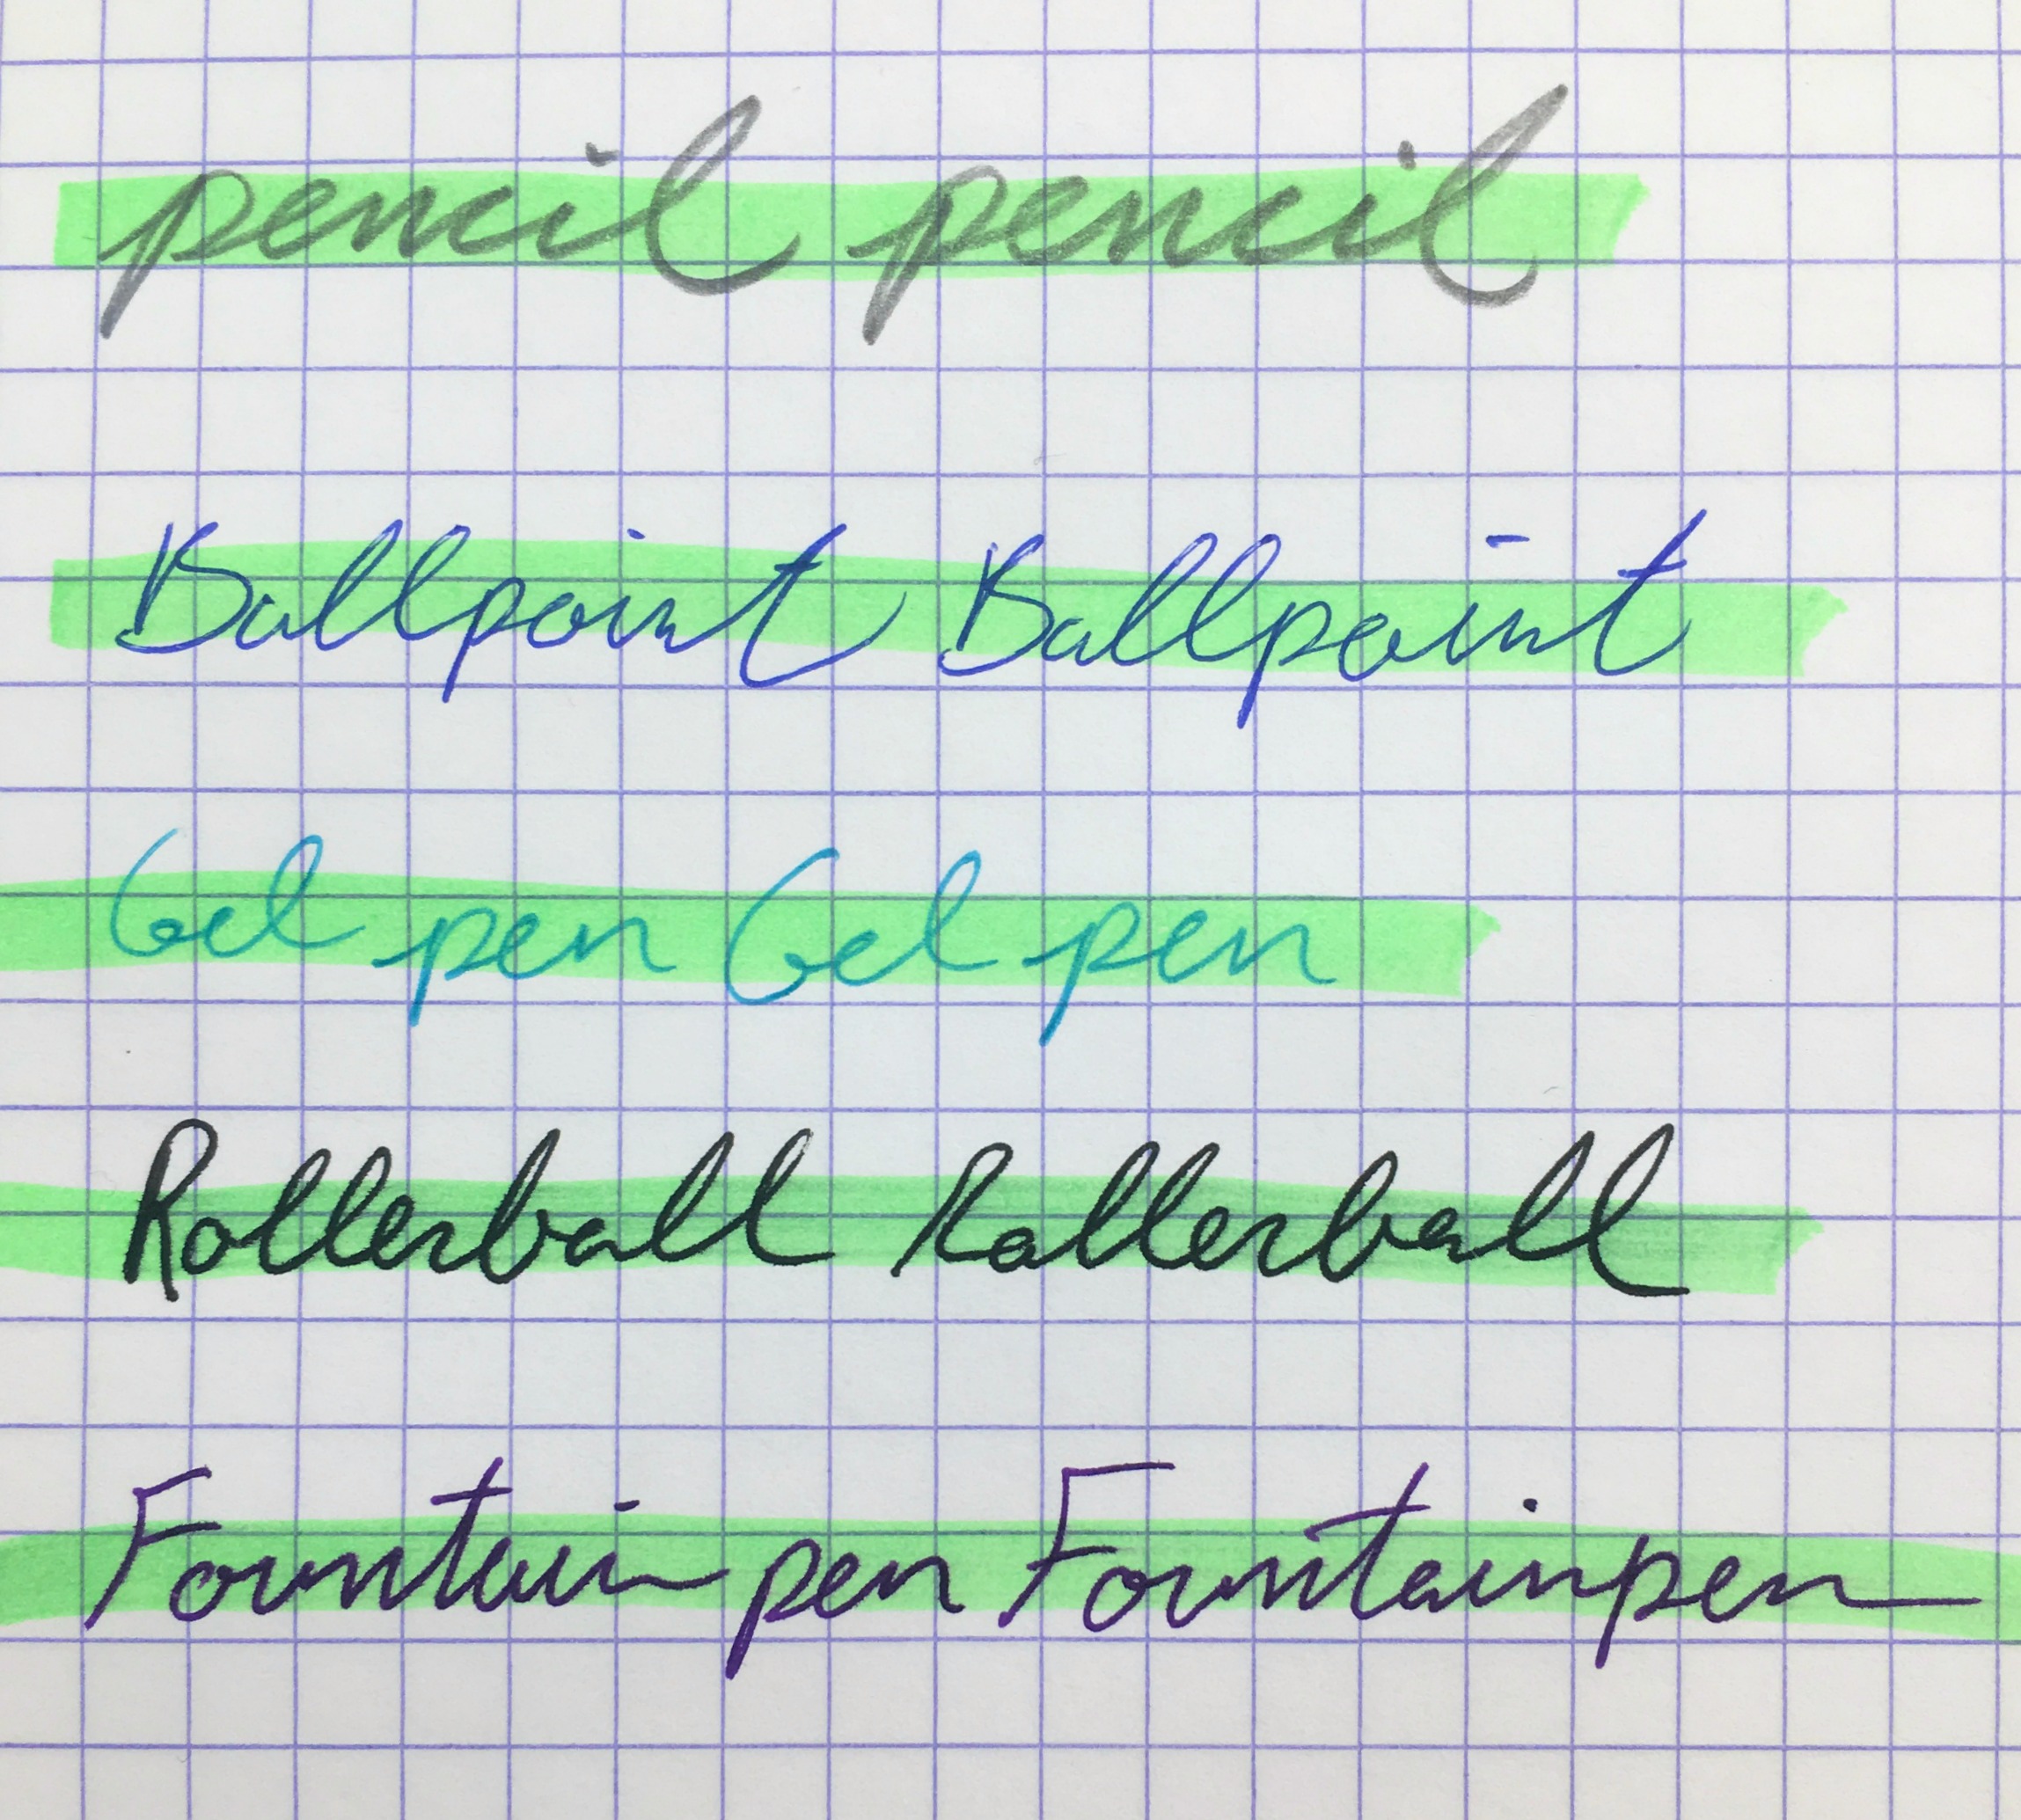 pencil pencil
Ballpoint Ballpoint
Gel pen Gel pen
Rollerball Rollerball
Fountain pen Fountainpen